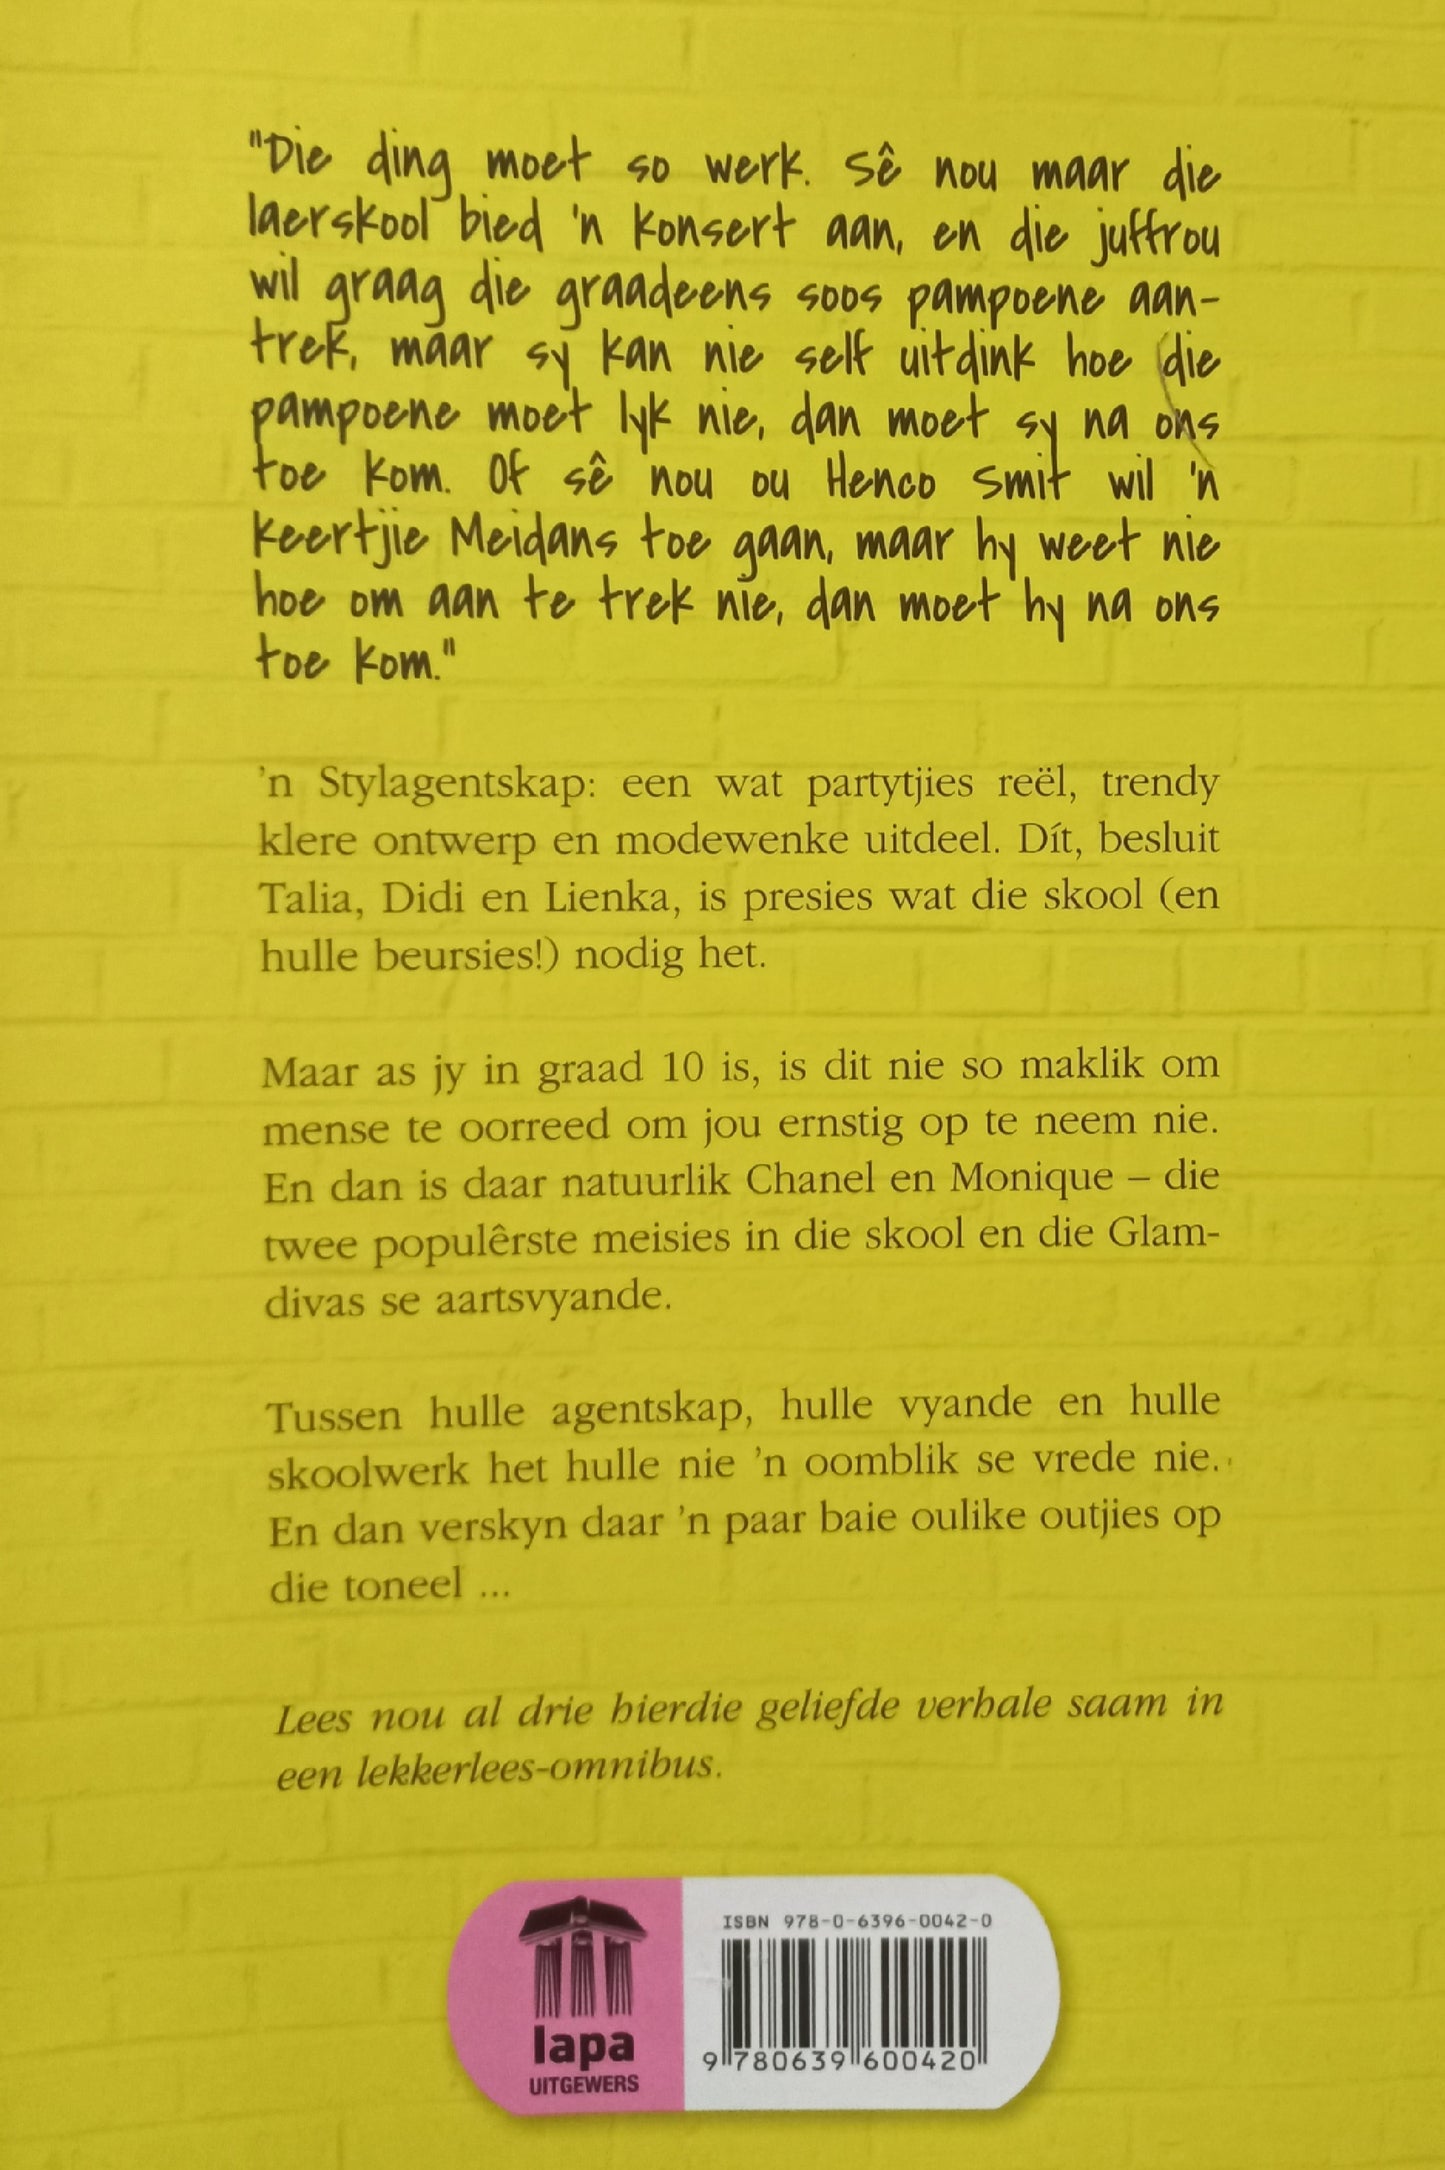 "Die ding moet so werk. Sê nou maar die
laerskool bied 'n konsert aan, en die juffrou
wil graag die graadeens soos pampoene aan-
trek, maar sy kan nie self uitdink hoe die
pampoene moet lyk nie, dan moet sy na ons
toe kom. Of sê nou ou Henco Smit wil 'n
keertjie Meidans toe gaan, maar hy weet nie
hoe om aan te trek nie, dan moet hy na ons
toe kom."
'n Stylagentskap: een wat partytjies reël, trendy
klere ontwerp en modewenke uitdeel. Dít, besluit
Talia, Didi en Lienka, is presies wat die skool (en
hulle beursies!) nodig het.
Maar as jy in graad 10 is, is dit nie so maklik om
mense te oorreed om jou ernstig op te neem nie.
En dan is daar natuurlik Chanel en Monique – die
twee populêrste meisies in die skool en die Glam-
divas se aartsvyande.
Tussen hulle agentskap, hulle vyande en hulle
skoolwerk het hulle nie 'n oomblik se vrede nie.
En dan verskyn daar 'n paar baie oulike outjies op
die toneel ...
Lees nou al drie hierdie geliefde verhale saam in
een lekkerlees-omnibus.
lapa
UITGEWERS
ISBN 978-0-6396-0042-0
9 780639 600420